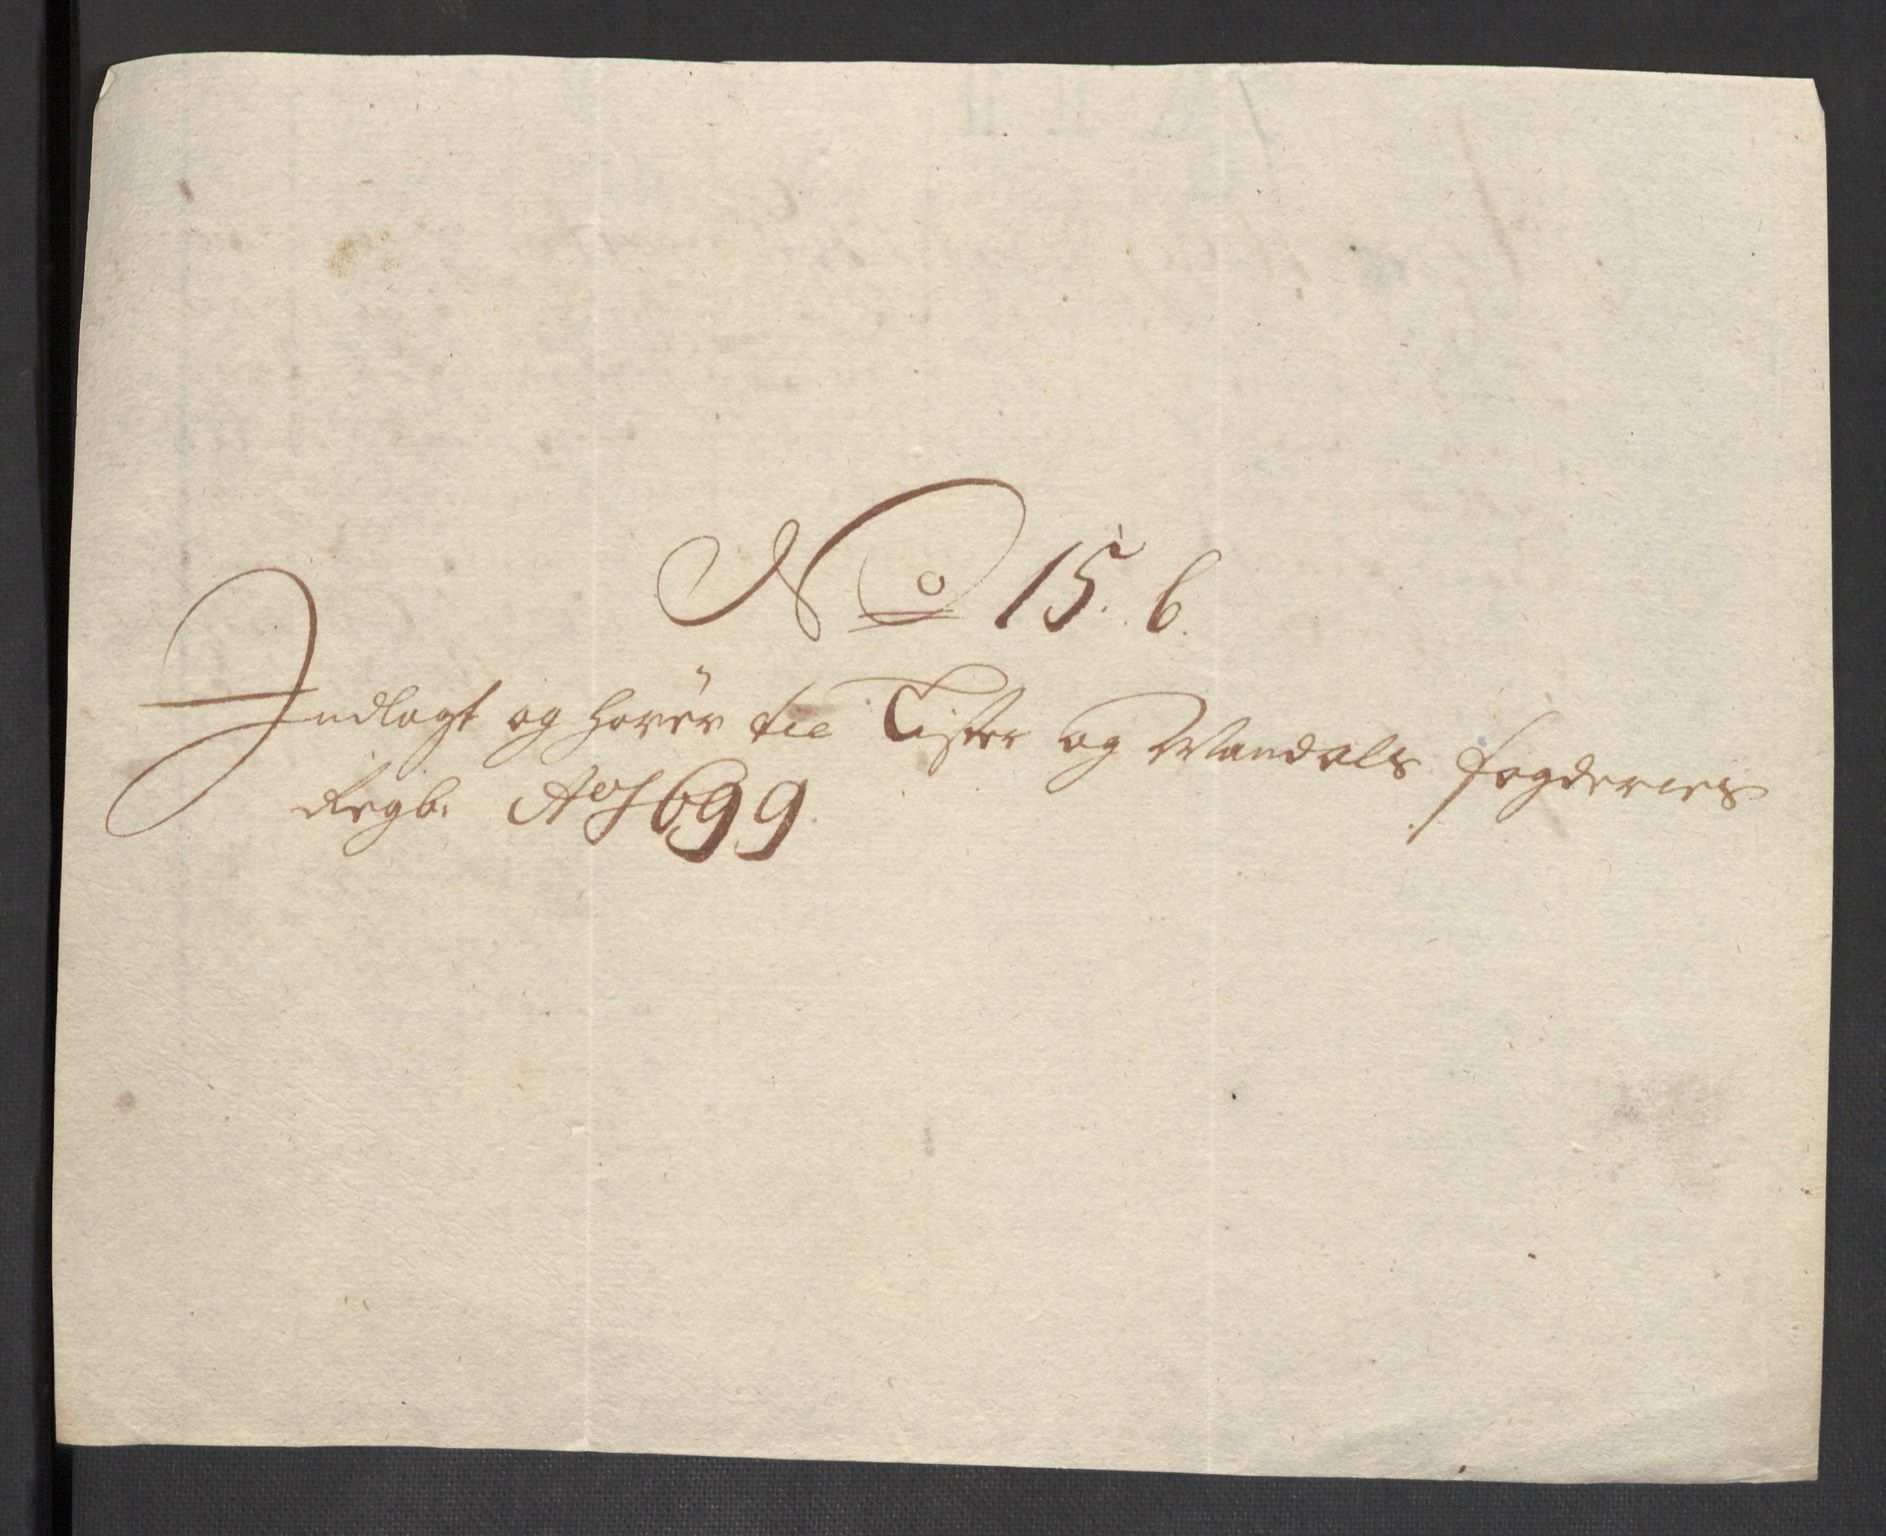 No 15. b.
Indlagt og hører til Lister og Mandals fogderies
Regb: Ao 1699.